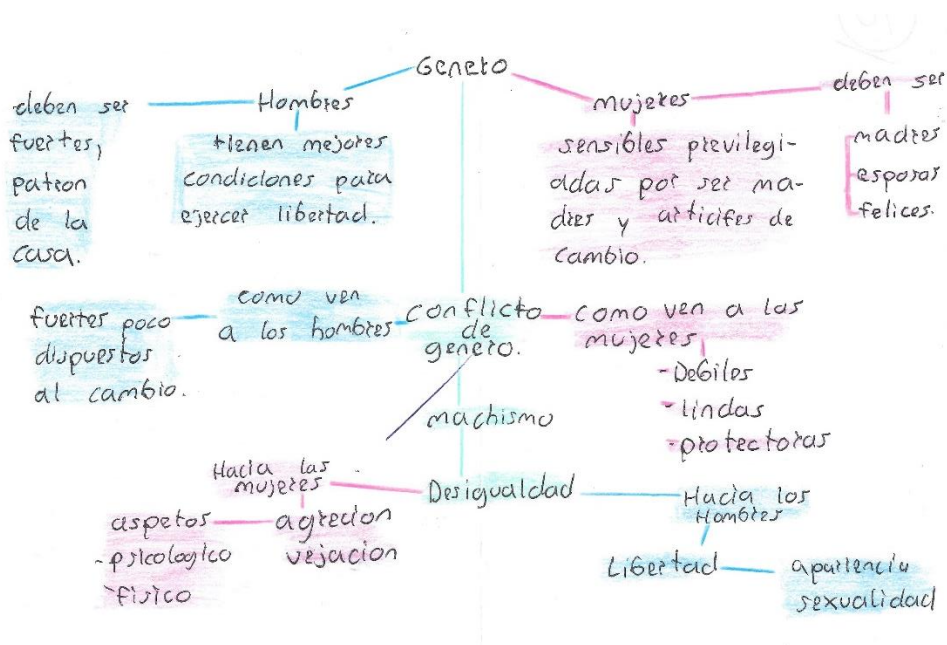 Genero
deben ser
fuertes,
patron
de la
casa.
Hombres
tienen mejores
condiciones para
ejercer libertad.
mujeres
sensibles previlegi-
adas por ser ma-
dres y articifes de
cambio.
deben ser
madres
esposas
felices.
conflicto
de
genero.
como ven
a los hombres
fuertes poco
dispuestos
al cambio.
como ven a las
mujeres
- Debiles
- lindas
- protectoras
machismo
Desigualdad
Hacia las
mujeres
agrecion
vejacion
aspetos
- psicologico
- fisico
Hacia los
Hombres
Libertad
apariencia
sexualidad